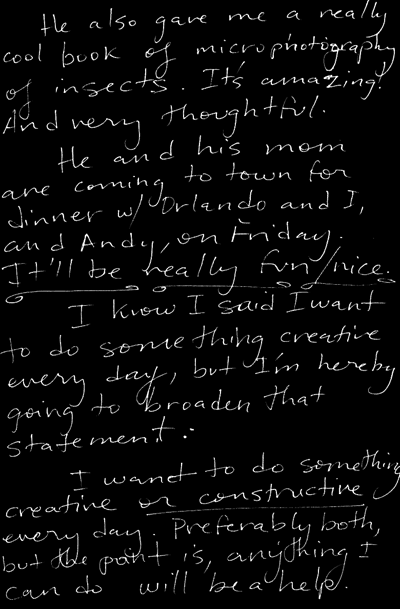 He also gave me a really
cool book of microphotography
of insects. It's amazing!
And very thoughtful.
He and his mom
are coming to town for
dinner w/ Orlando and I,
and Andy, on Friday.
It'll be really fun/nice.
I know I said I want
to do something creative
every day, but I'm hereby
going to broaden that
statement:
I want to do something
creative or constructive
every day. Preferably both,
but the point is, anything I
can do will be a help.